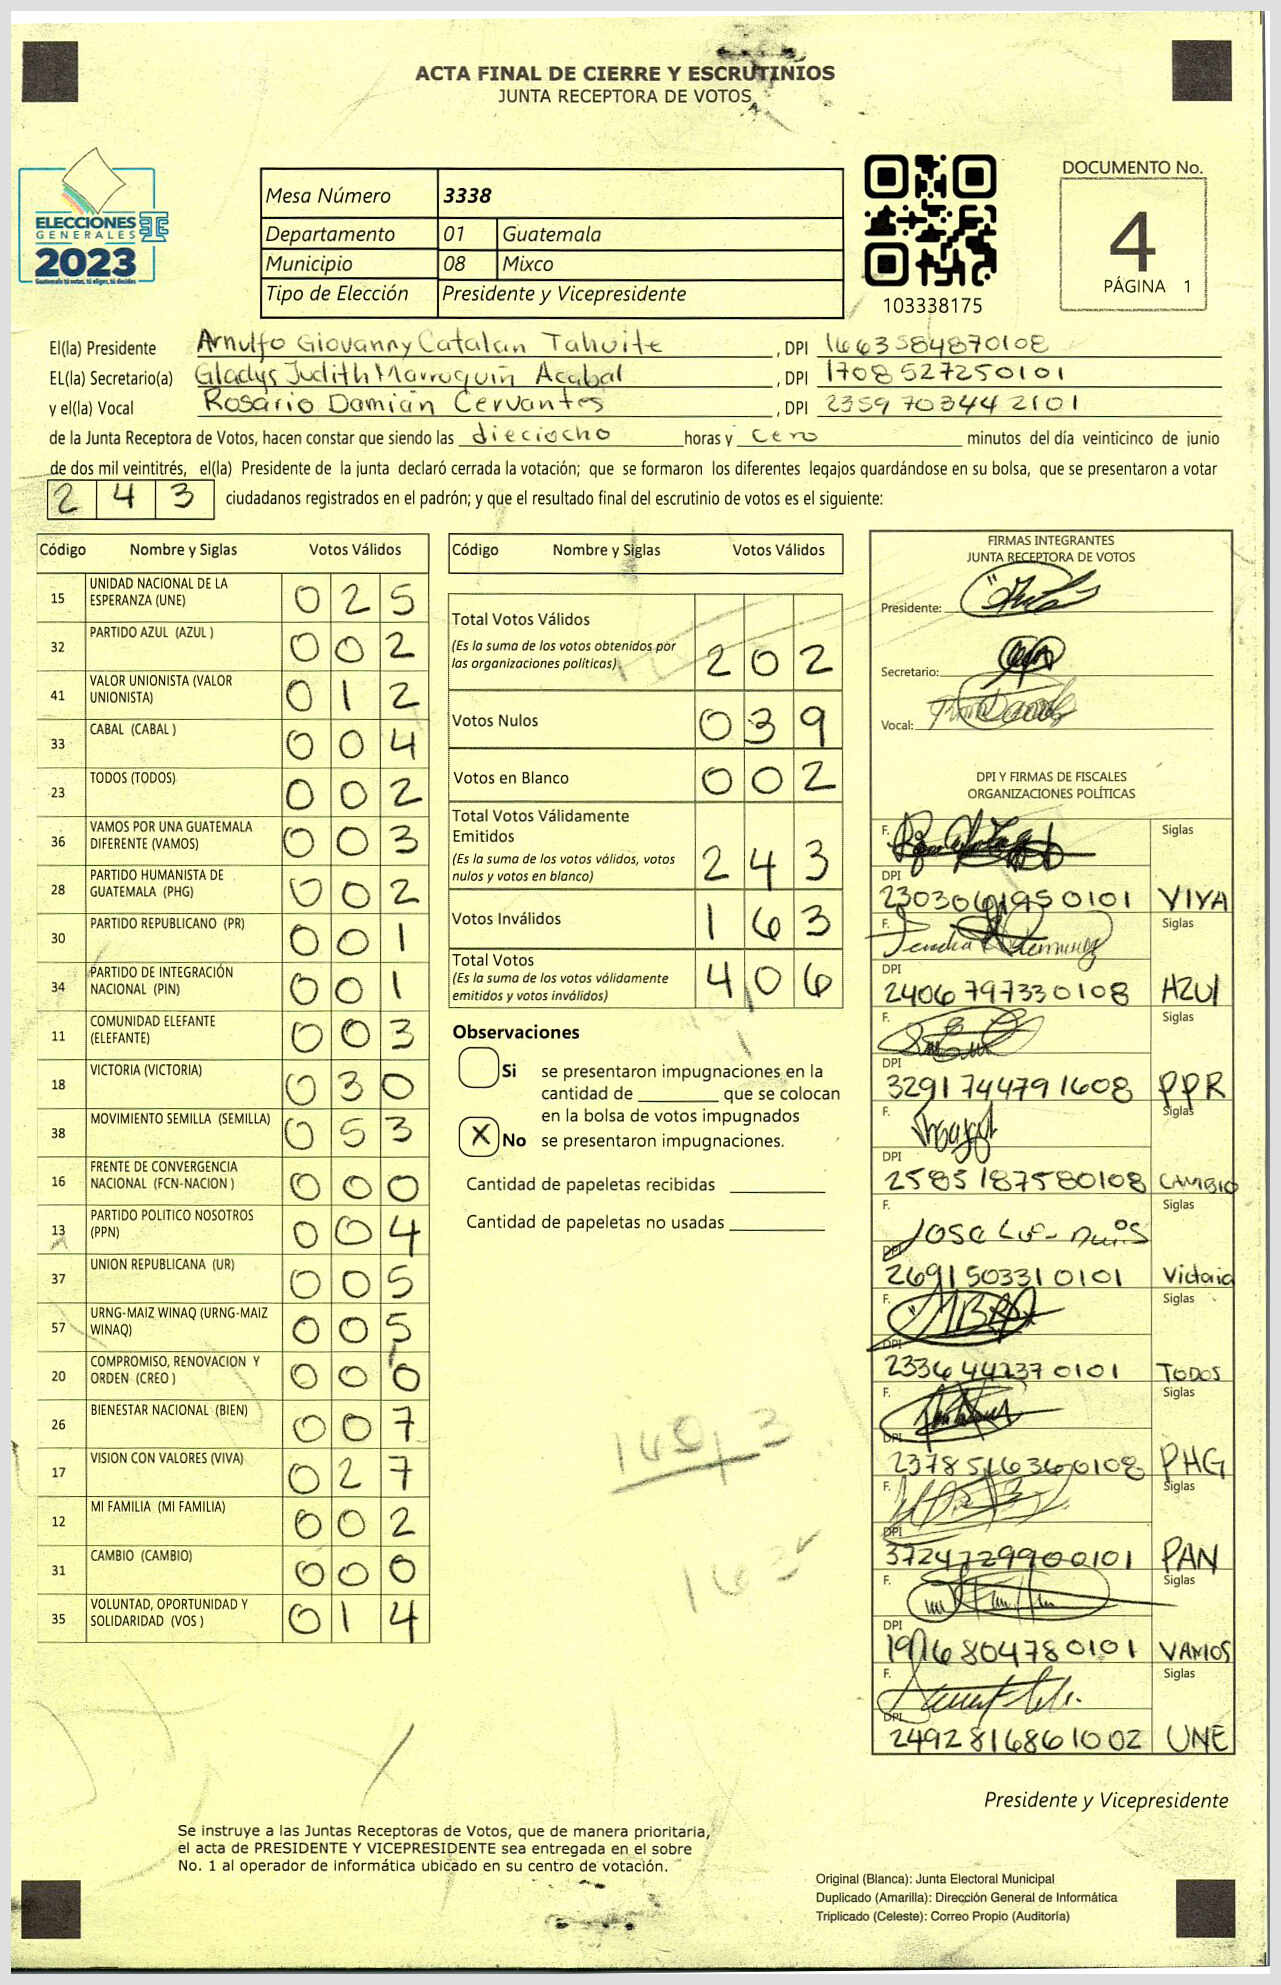 ACTA FINAL DE CIERRE Y ESCRUTINIOS
JUNTA RECEPTORA DE VOTOS
ELECCIONES
GENERALES
2023
Guatemala tú votas, tú eliges, tú decides
Mesa Número 3338
Departamento 01 Guatemala
Municipio 08 Mixco
Tipo de Elección Presidente y Vicepresidente
103338175
DOCUMENTO No.
4
PÁGINA 1
El(la) Presidente Arnulfo Giovanny Catalan Tahuite , DPI 1663584870108
EL(la) Secretario(a) Gladys Judith Marroquin Acabal , DPI 1708527250101
y el(la) Vocal Rosario Damián Cervantes , DPI 2359703442101
de la Junta Receptora de Votos, hacen constar que siendo las dieciocho horas y cero minutos del día veinticinco de junio
de dos mil veintitrés, el(la) Presidente de la junta declaró cerrada la votación; que se formaron los diferentes legajos quardándose en su bolsa, que se presentaron a votar
243 ciudadanos registrados en el padrón; y que el resultado final del escrutinio de votos es el siguiente:
Código Nombre y Siglas Votos Válidos
15 UNIDAD NACIONAL DE LA ESPERANZA (UNE) 025
32 PARTIDO AZUL (AZUL ) 002
41 VALOR UNIONISTA (VALOR UNIONISTA) 012
33 CABAL (CABAL ) 004
23 TODOS (TODOS) 002
36 VAMOS POR UNA GUATEMALA DIFERENTE (VAMOS) 003
28 PARTIDO HUMANISTA DE GUATEMALA (PHG) 002
30 PARTIDO REPUBLICANO (PR) 001
34 PARTIDO DE INTEGRACIÓN NACIONAL (PIN) 001
11 COMUNIDAD ELEFANTE (ELEFANTE) 003
18 VICTORIA (VICTORIA) 030
38 MOVIMIENTO SEMILLA (SEMILLA) 053
16 FRENTE DE CONVERGENCIA NACIONAL (FCN-NACION ) 000
13 PARTIDO POLITICO NOSOTROS (PPN) 004
37 UNION REPUBLICANA (UR) 005
57 URNG-MAIZ WINAQ (URNG-MAIZ WINAQ) 005
20 COMPROMISO, RENOVACION Y ORDEN (CREO ) 000
26 BIENESTAR NACIONAL (BIEN) 007
17 VISION CON VALORES (VIVA) 027
12 MI FAMILIA (MI FAMILIA) 002
31 CAMBIO (CAMBIO) 000
35 VOLUNTAD, OPORTUNIDAD Y SOLIDARIDAD (VOS ) 014
Código Nombre y Siglas Votos Válidos
Total Votos Válidos
(Es la suma de los votos obtenidos por
las organizaciones políticas) 202
Votos Nulos 039
Votos en Blanco 002
Total Votos Válidamente
Emitidos
(Es la suma de los votos válidos, votos
nulos y votos en blanco) 243
Votos Inválidos 163
Total Votos
(Es la suma de los votos válidamente
emitidos y votos inválidos) 406
Observaciones
Si se presentaron impugnaciones en la
cantidad de ________ que se colocan
en la bolsa de votos impugnados
X No se presentaron impugnaciones.
Cantidad de papeletas recibidas
Cantidad de papeletas no usadas
163
FIRMAS INTEGRANTES
JUNTA RECEPTORA DE VOTOS
Presidente:
Secretario:
Vocal:
DPI Y FIRMAS DE FISCALES
ORGANIZACIONES POLÍTICAS
F. Siglas
DPI
2303061950101 VIVA
F. Siglas
DPI
2406797330108 AZUL
F. Siglas
DPI
3291744791608 PPR
F. Siglas
DPI
2585187580108 CAMBIO
F. Siglas
DPI
2691503310101 Victoria
F. Siglas
DPI
2336442370101 TODOS
F. Siglas
DPI
2378516360108 PHG
F. Siglas
DPI
3724729900101 PAN
F. Siglas
DPI
1916804780101 VAMOS
F. Siglas
DPI
2492816861002 UNE
Presidente y Vicepresidente
Se instruye a las Juntas Receptoras de Votos, que de manera prioritaria,
el acta de PRESIDENTE Y VICEPRESIDENTE sea entregada en el sobre
No. 1 al operador de informática ubicado en su centro de votación.
Original (Blanca): Junta Electoral Municipal
Duplicado (Amarilla): Dirección General de Informática
Triplicado (Celeste): Correo Propio (Auditoría)